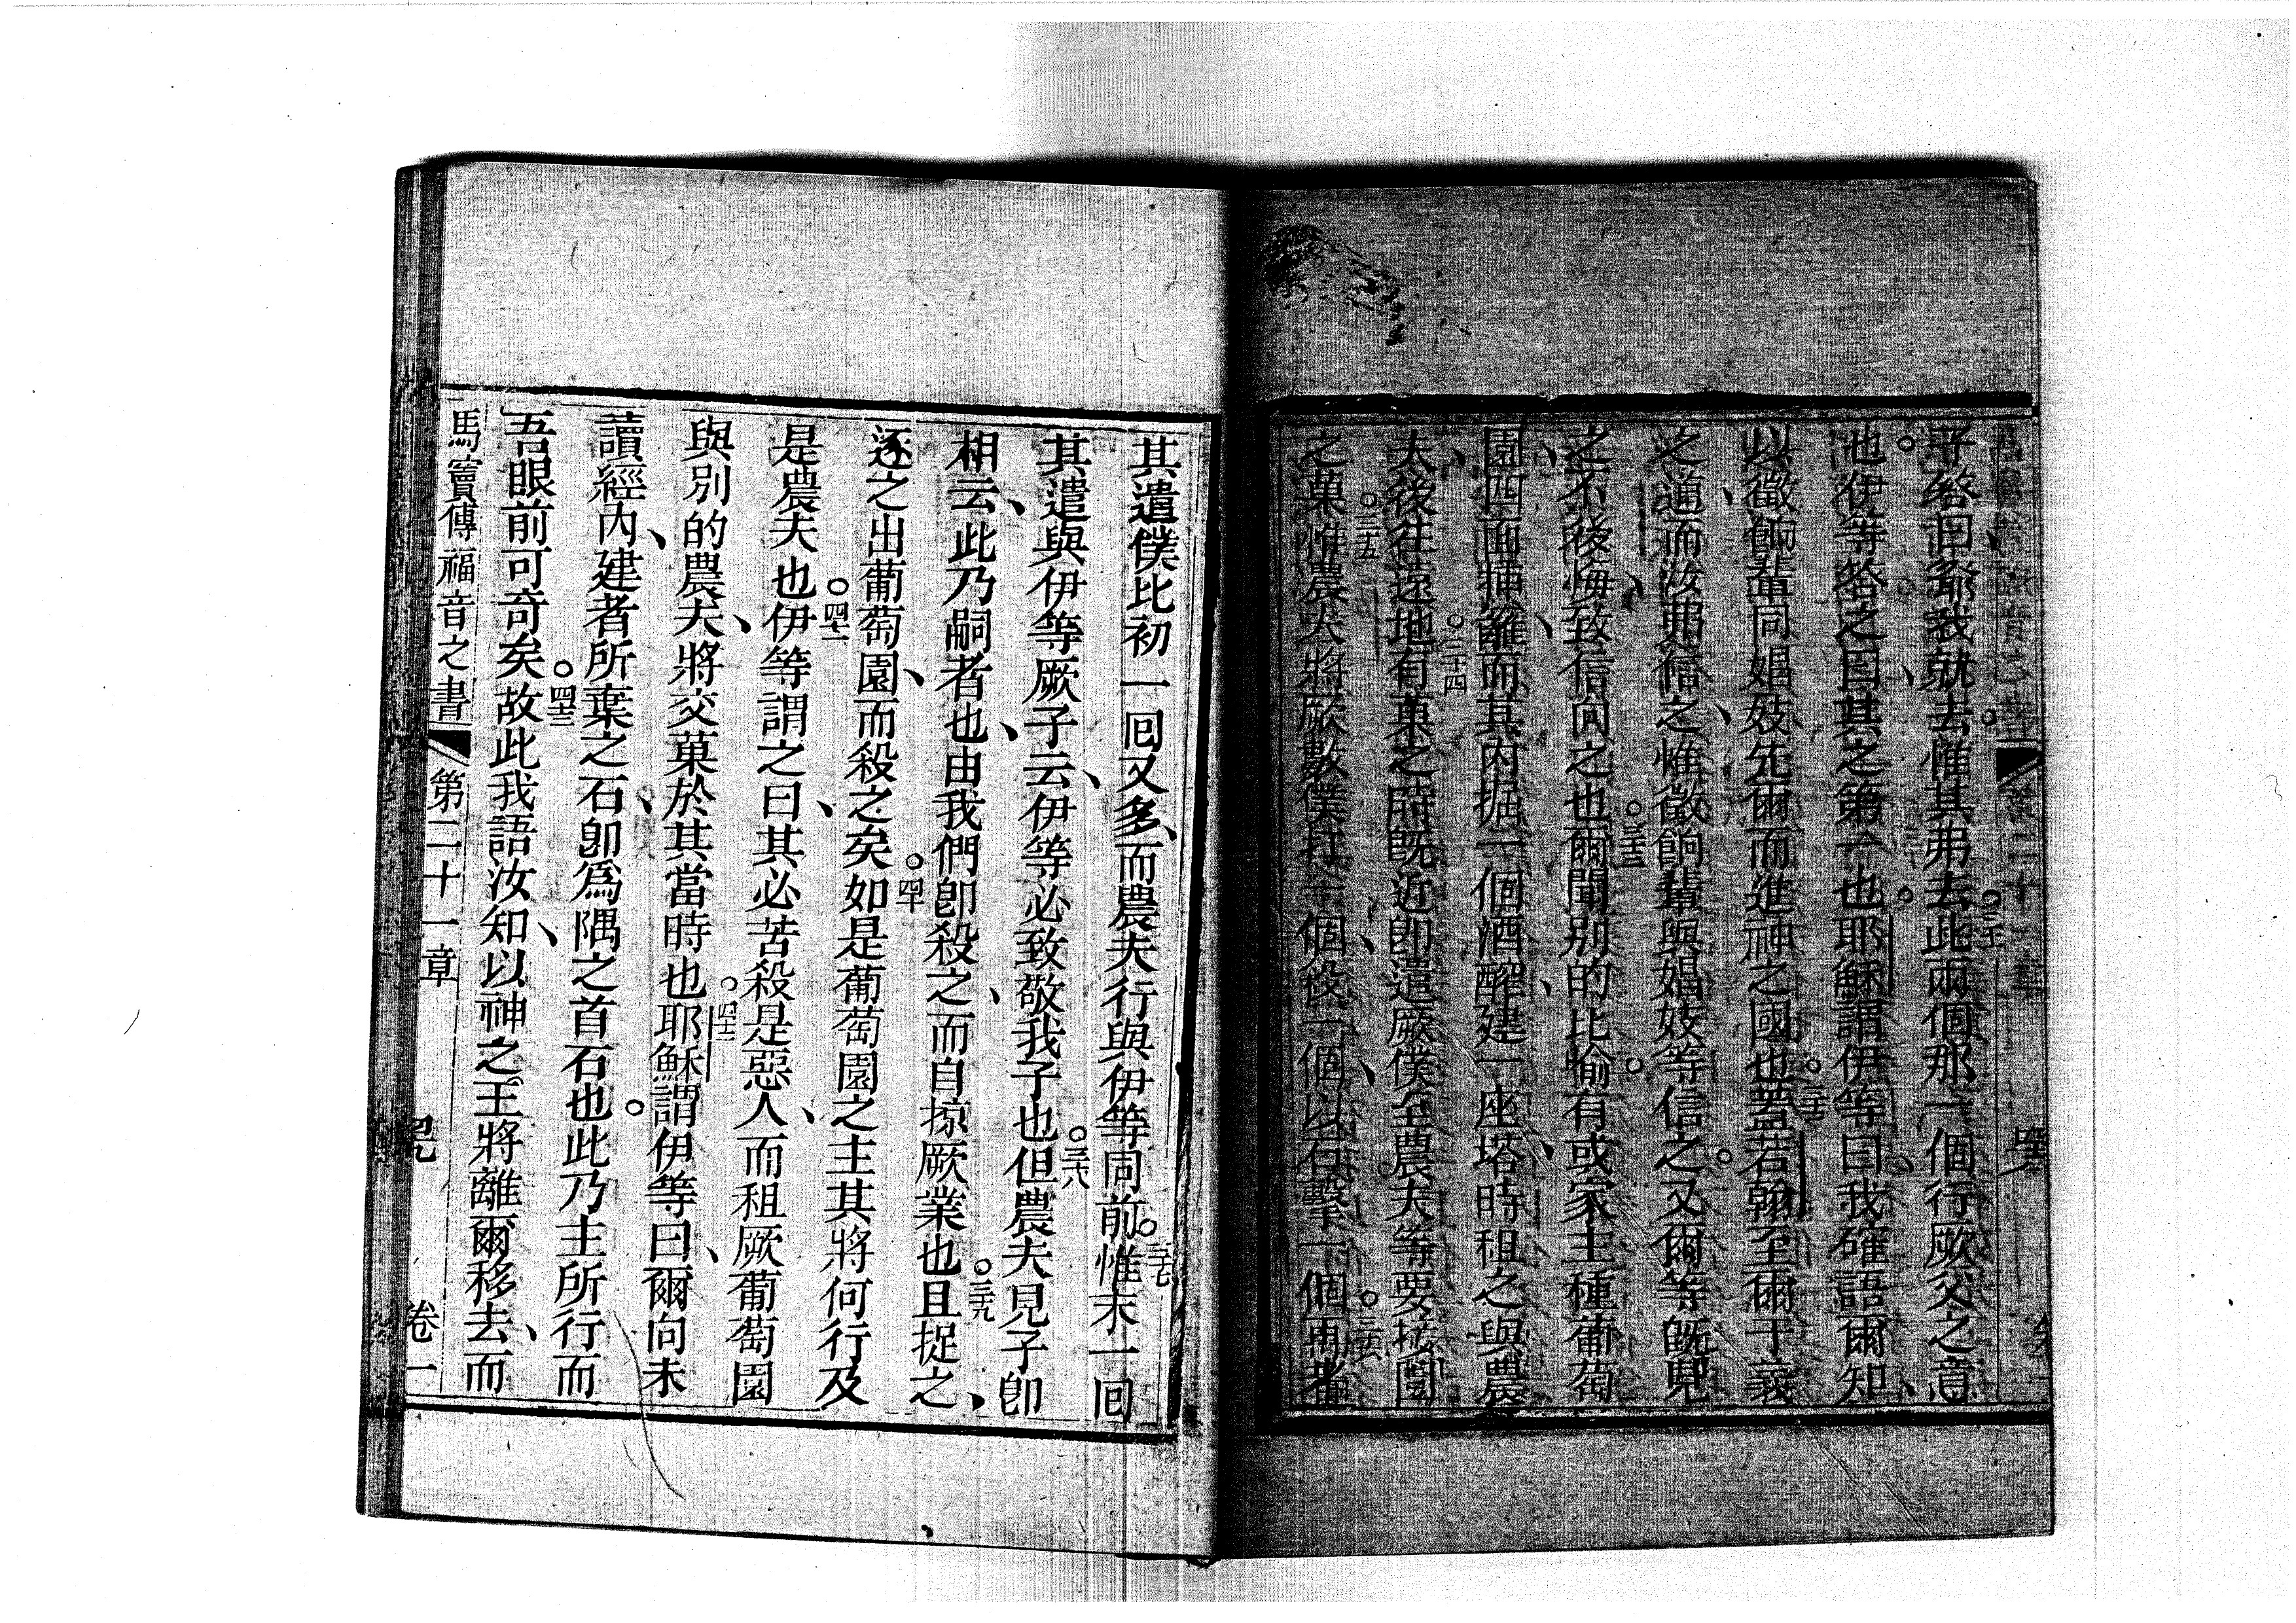 子答曰、爺我就去。惟其弟去。三十一此兩個那一個行厥父之意
也。伊等答之曰、其之第一也。耶穌謂伊等曰、我確語爾知、
以徵餉輩同娼妓先爾而進神之國也。三十二蓋若翰至爾于義
之道、而汝弗信之、惟徵餉輩與娼妓等信之。又爾等既見
之、不後悔、致信向之也。三十三爾聞別的比喻。有或家主種葡萄
園、四面插籬、而其內掘一個酒醡、建一座塔、時租之與農
夫、後往遠地。三十四有菓之時既近、即遣厥僕至農夫等要接園
之菓。三十五惟農夫將厥數僕打一個、殺一個、以石擊一個。三十六再者
其遣僕比初一回又多、而農夫行與伊等同前。三十七惟末一回
其遣與伊等厥子云、伊等必致敬我子也。三十八但農夫見子即
相云、此乃嗣者也、由我們即殺之、而自掠厥業也。三十九且捉之、
逐之出葡萄園、而殺之矣。四十如是葡萄園之主其將何行及
是農夫也。四十一伊等謂之曰、其必苦殺是惡人、而租厥葡萄園
與別的農夫、將交菓於其當時也。四十二耶穌謂伊等曰、爾向未
讀經內、建者所棄之石、即為隅之首石也。此乃主所行而
吾眼前可奇矣。四十三故此我語汝知、以神之王將離爾移去、而
馬竇傳福音之書 第二十一章 卷一